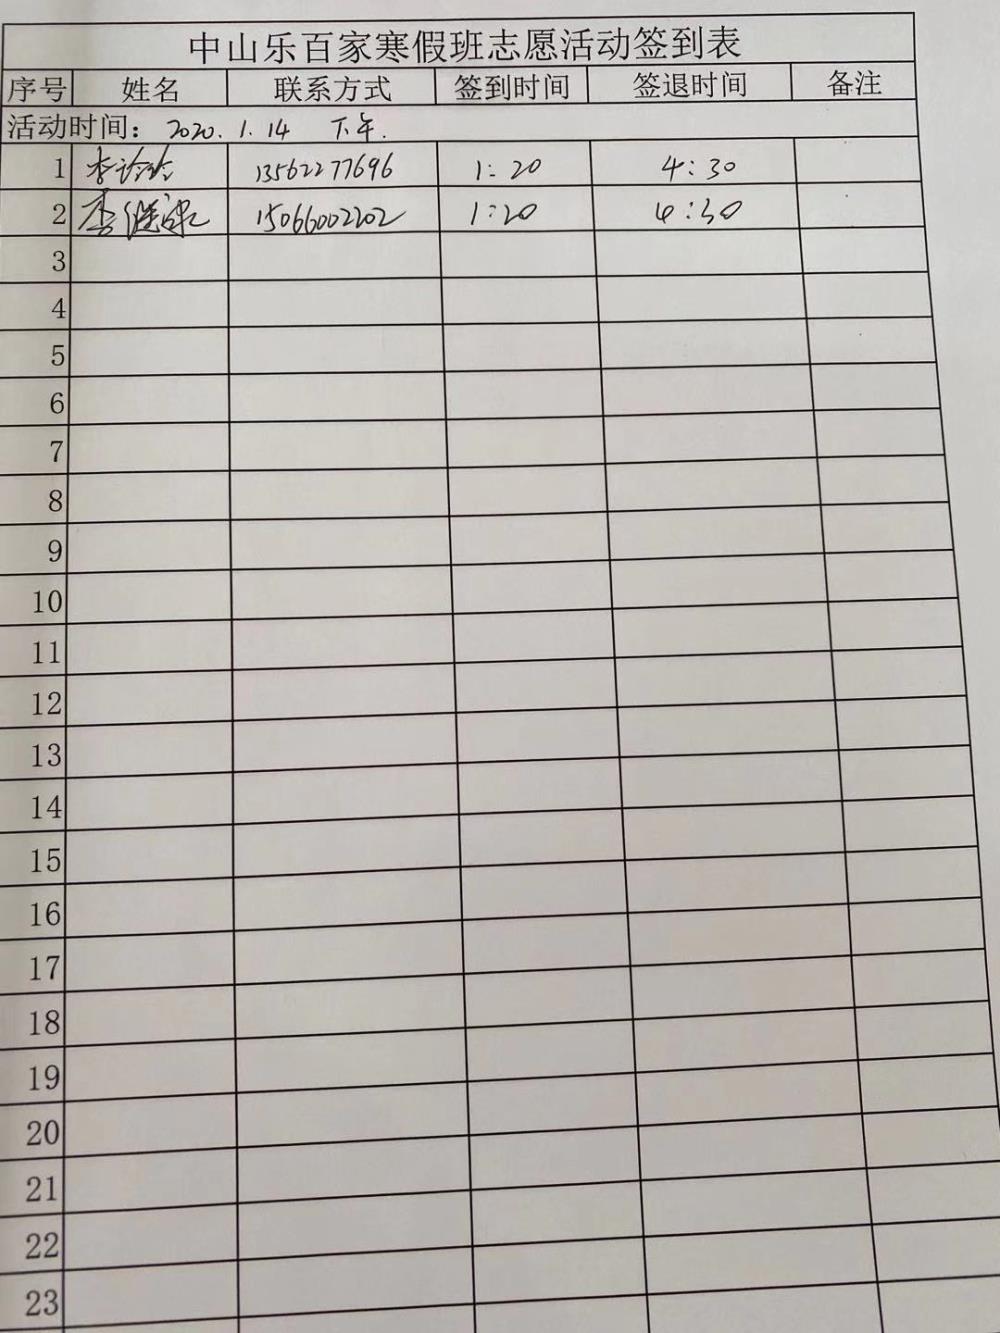 中山乐百家寒假班志愿活动签到表
序号 姓名 联系方式 签到时间 签退时间 备注
活动时间： 2020.1.14 下午.
1 李 13562277696 1:20 4:30
2 15066002202 1:20 4:30
3
4
5
6
7
8
9
10
11
12
13
14
15
16
17
18
19
20
21
22
23